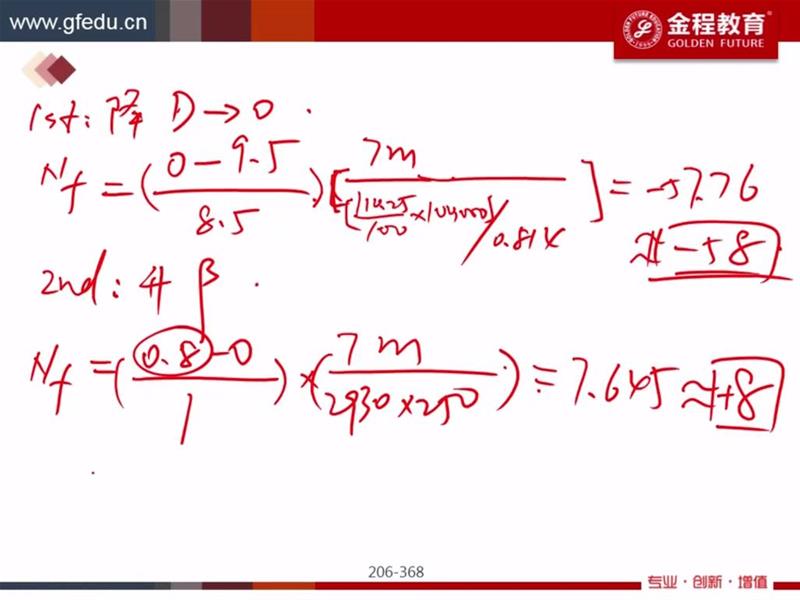 www.gfedu.cn
金程教育®
GOLDEN FUTURE
1st: 降 D→0 .
Nf = (0-9.5 / 8.5) [7m / ([ /100 × 100000] / 0.814)] = -57.76
≈ -58
2nd: 升 β .
Nf = (0.8-0 / 1) × (7m / 2930×250) = 7.645 ≈ +8
206-368
专业·创新·增值